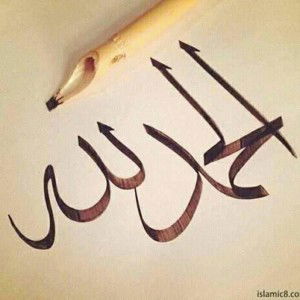 الحمد لله
islamic8.com